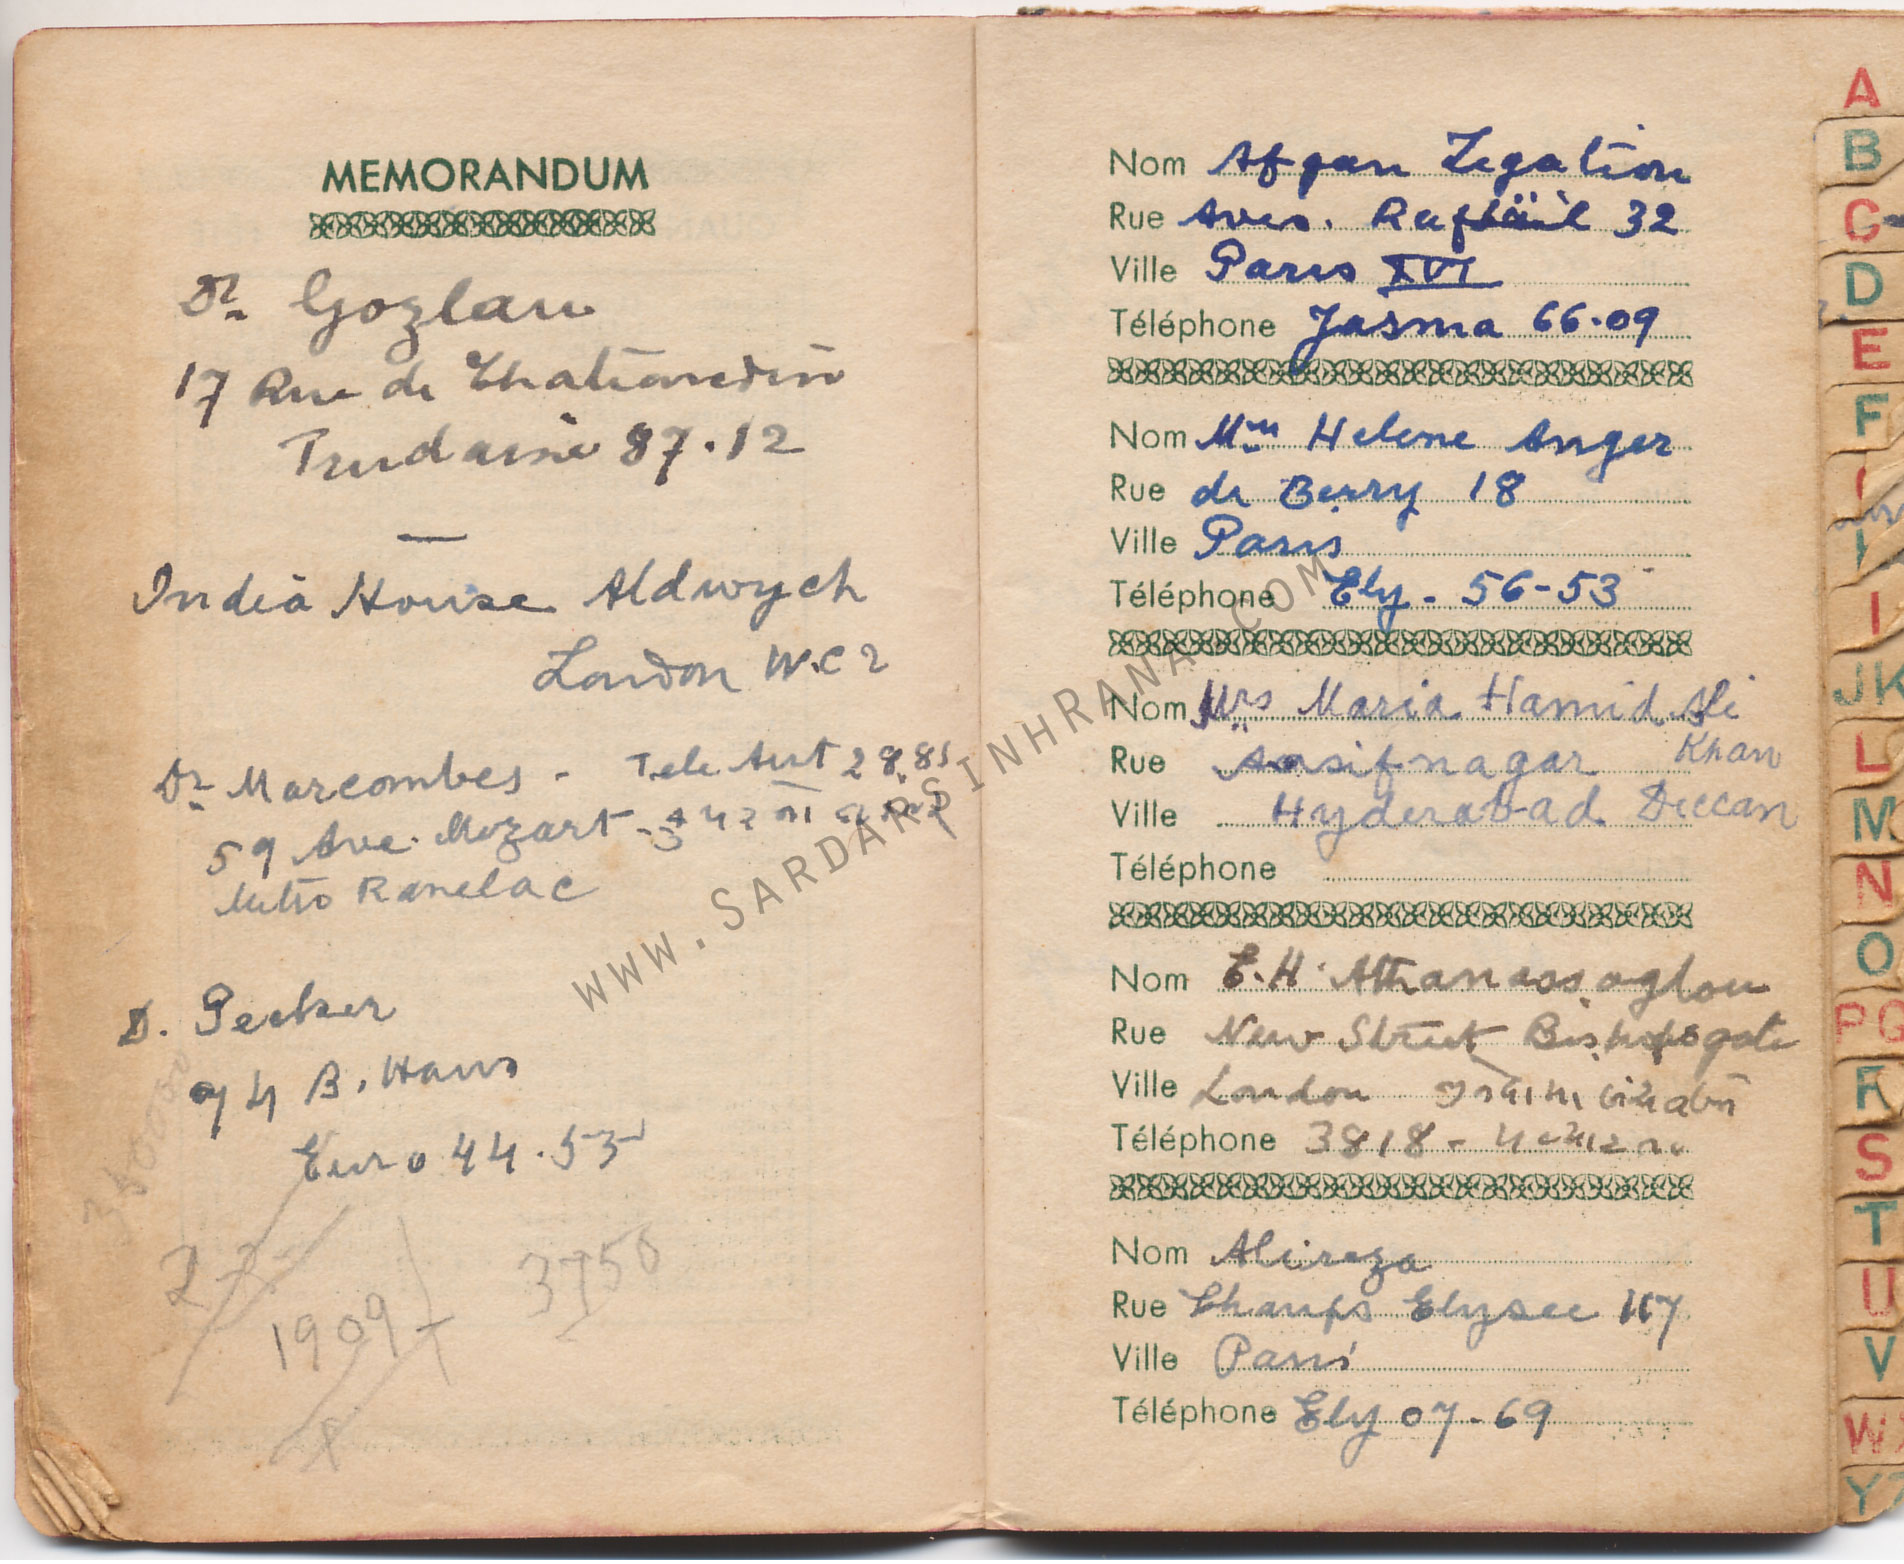 MEMORANDUM
Dr. Gozlan
17 Rue de
Trudaine 87.12
India House Aldwych
London W.C 2
Dr. Marcombes - Tele Aut 28.81
59 Ave. Mozart
Metro Ranelac
D. Pecker
74 B. Haus
Euro 44.53
350000
27
1909
3750
Nom Afgan Legation
Rue Aves. 32
Ville Paris XVI
Téléphone Jasma 66.09
Nom Helene Anger
Rue de Berry 18
Ville Paris
Téléphone Ely - 56-53
Nom Mrs Maria Hamid Ali
Khan
Rue Aasifnagar
Ville Hyderabad Deccan
Téléphone
Nom E.H. Athanassoglou
Rue New Street Bishopsgate
Ville London
Téléphone 3818 -
Nom Alireza
Rue Champs Elysee 117
Ville Paris
Téléphone Ely 07-69
A
B
C
D
E
F
I
JK
L
M
N
O
PQ
R
S
T
U
V
W
Y
WWW.SARDARSINHRANA.COM